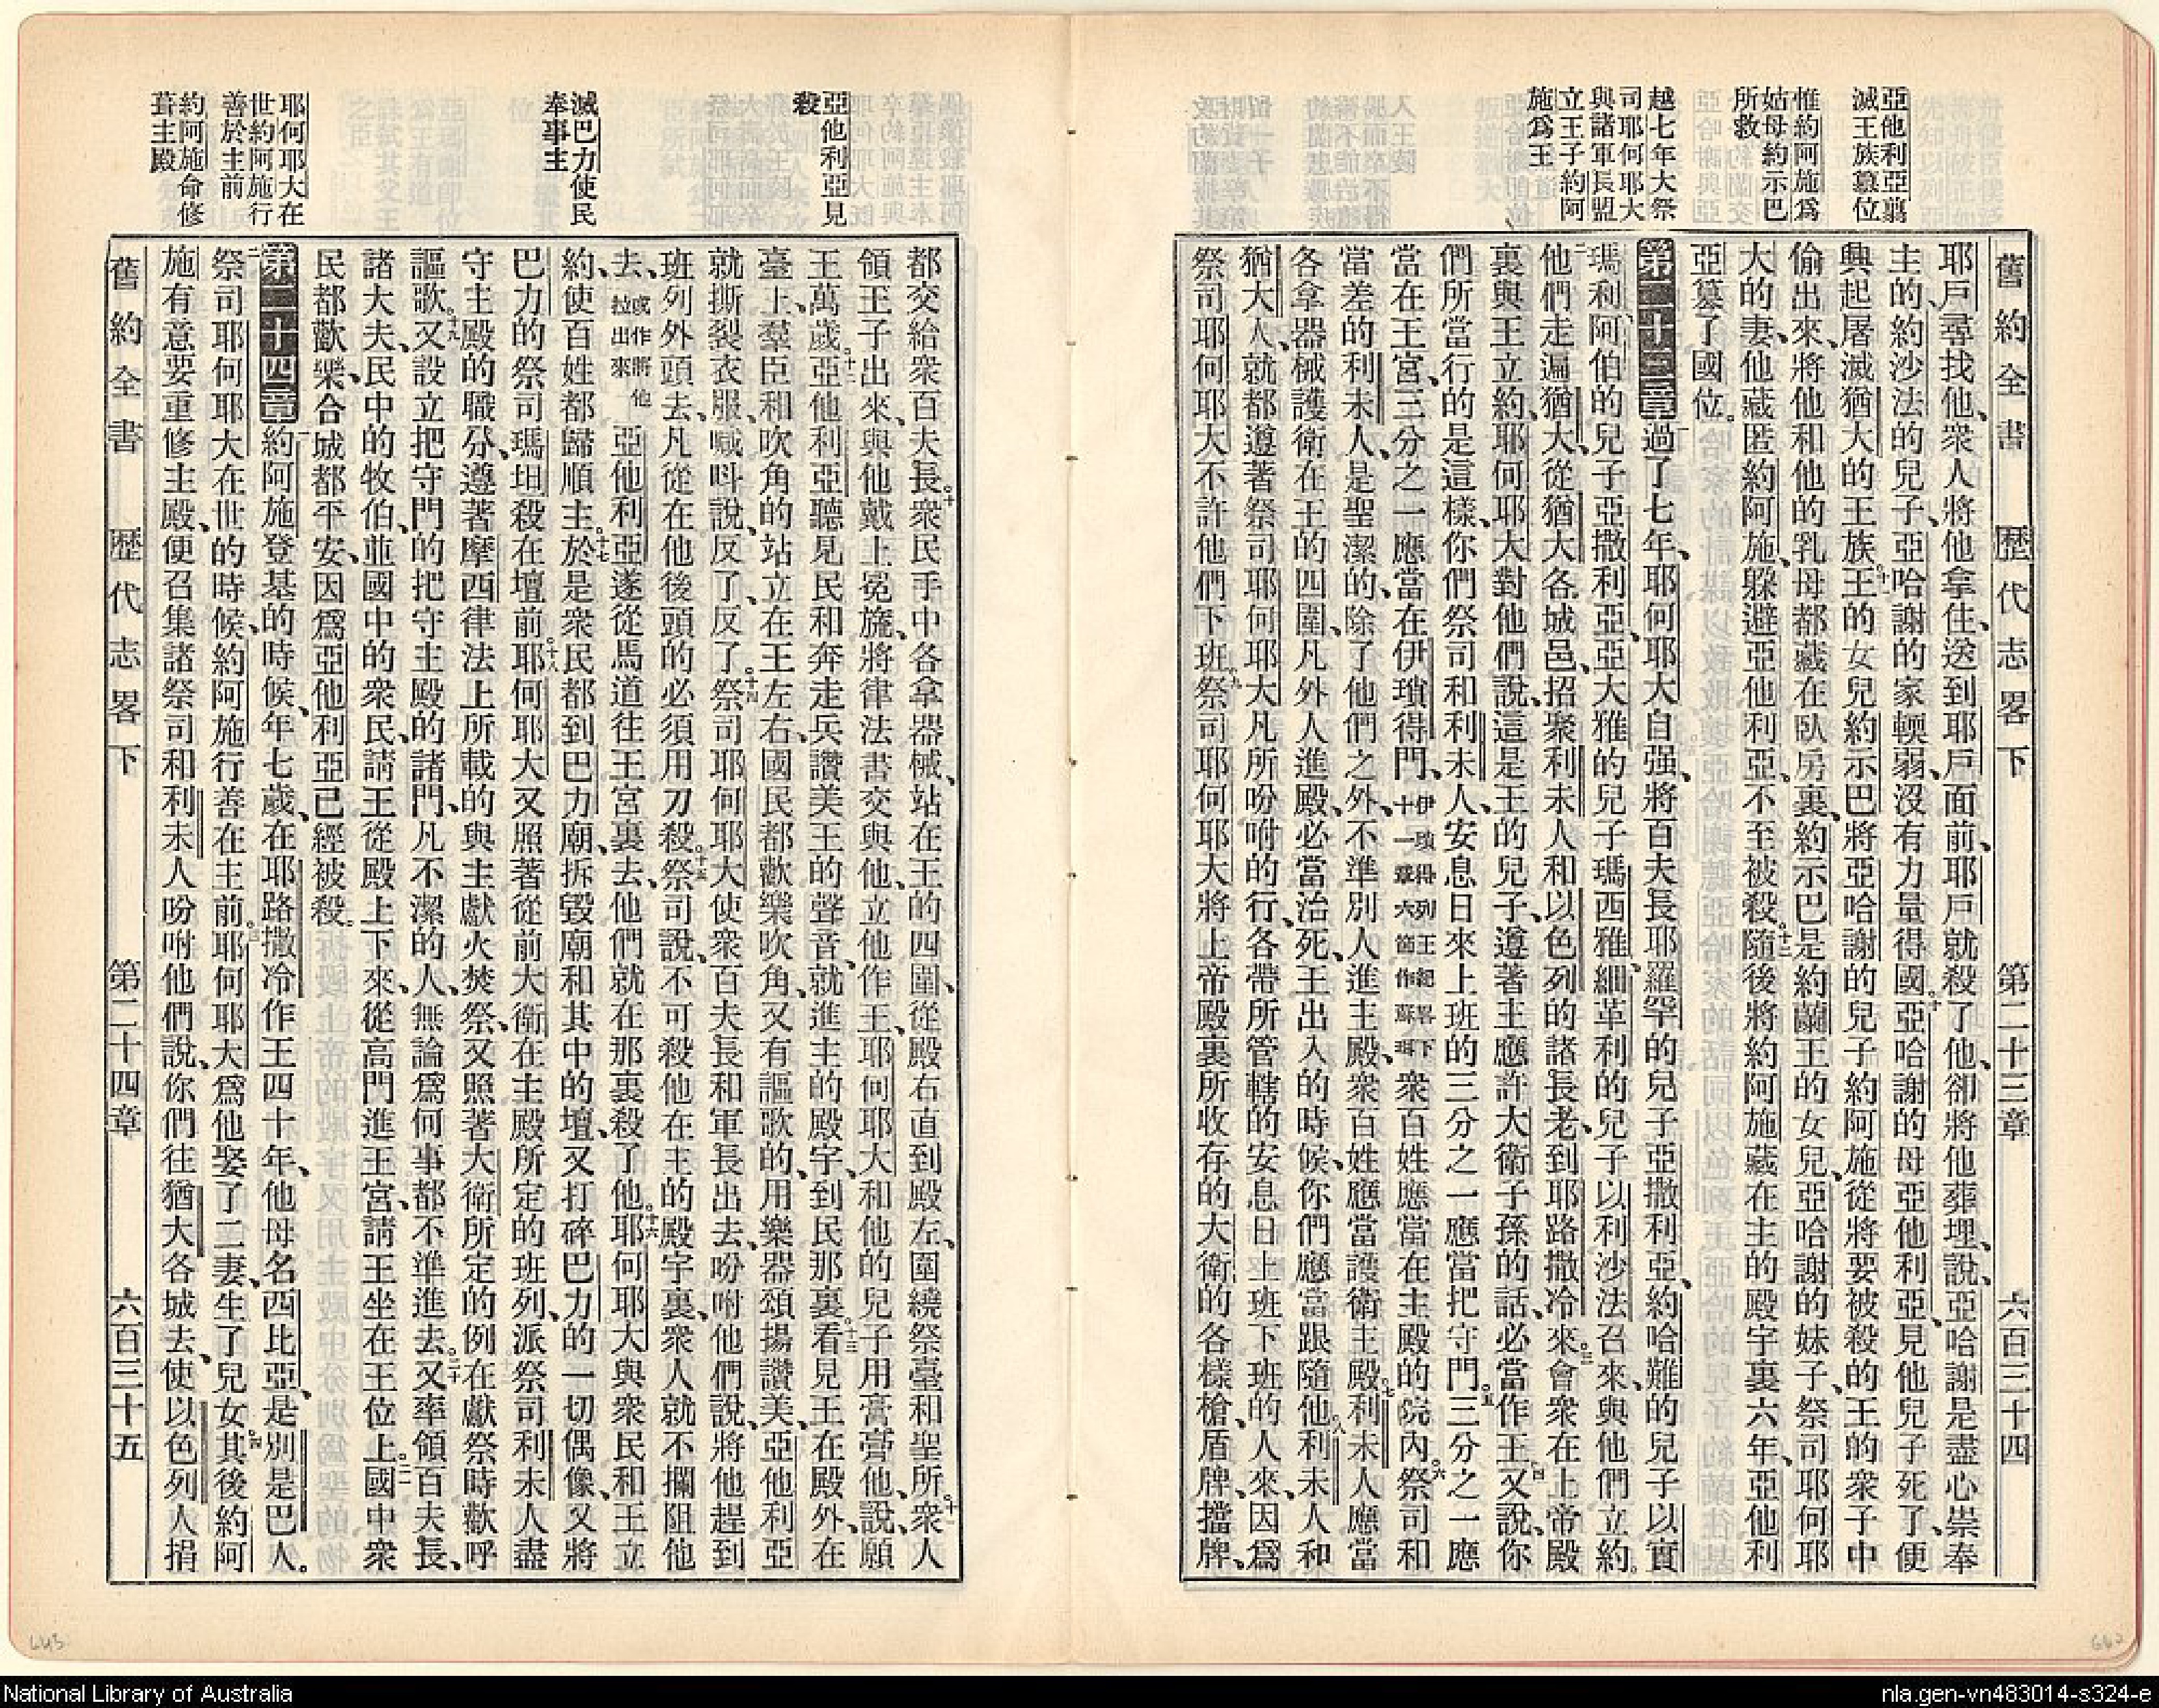 舊約全書 歷代志畧下 第二十三章 六百三十四
亞他利亞翦
滅王族篡位
惟約阿施爲
姑母約示巴
所救
越七年大祭
司耶何耶大
與諸軍長盟
立王子約阿
施爲王
耶戶尋找他、衆人將他拿住、送到耶戶面前、耶戶就殺了他、卻將他葬埋、說、亞哈謝是盡心崇奉
主的約沙法的兒子、亞哈謝的家輭弱、沒有力量得國。十亞哈謝的母亞他利亞、見他兒子死了、便
興起屠滅猶大的王族。十一王的女兒約示巴將亞哈謝的兒子約阿施、從將要被殺的王的衆子中
偷出來、將他和他的乳母都藏在臥房裏、約示巴是約蘭王的女兒、亞哈謝的妹子、祭司耶何耶
大的妻、他藏匿約阿施、躲避亞他利亞、不至被殺。十二隨後將約阿施藏在主的殿宇裏六年、亞他利
亞篡了國位。
第二十三章 一過了七年、耶何耶大自强、將百夫長耶羅罕的兒子亞撒利亞、約哈難的兒子以實
瑪利、阿伯的兒子亞撒利亞、亞大雅的兒子瑪西雅、細革利的兒子以利沙法召來、與他們立約。
二他們走遍猶大、從猶大各城邑、招聚利未人和以色列的諸長老、到耶路撒冷來。三會衆在上帝殿
裏與王立約、耶何耶大對他們說、這是王的兒子、遵著主應許大衛子孫的話、必當作王。四又說、你
們所當行的是這樣、你們祭司和利未人、安息日來上班的三分之一應當把守門。五三分之一應
當在王宮、三分之一應當在伊瑣得門、伊瑣得列王紀畧下十一章六節作蘇珥衆百姓應當在主殿的院內。六祭司和
當差的利未人、是聖潔的、除了他們之外、不準別人進主殿、衆百姓應當護衛主殿。七利未人應當
各拿器械、護衛在王的四圍、凡外人進殿、必當治死、王出入的時候、你們應當跟隨他。八利未人和
猶大人、就都遵著祭司耶何耶大凡所吩咐的行、各帶所管轄的安息日上班下班的人來、因爲
祭司耶何耶大不許他們下班。九祭司耶何耶大將上帝殿裏所收存的大衛的各樣槍、盾牌、擋牌、
亞他利亞見
殺
滅巴力使民
奉事主
耶何耶大在
世約阿施行
善於主前
約阿施命修
葺主殿
都交給衆百夫長。十衆民手中各拿器械、站在王的四圍、從殿右直到殿左、圍繞祭臺和聖所、十一衆人
領王子出來、與他戴上冕旒、將律法書交與他、立他作王、耶何耶大和他的兒子用膏膏他、說、願
王萬歲。十二亞他利亞聽見民和奔走兵讚美王的聲音、就進主的殿宇、到民那裏。十三看見王在殿外、在
臺上、羣臣和吹角的、站立在王左右、國民都歡樂吹角、又有謳歌的、用樂器頌揚讚美、亞他利亞
就撕裂衣服、喊呌說、反了、反了。十四祭司耶何耶大使衆百夫長和軍長出去、吩咐他們說、將他趕到
班列外頭去、凡從在他後頭的必須用刀殺。十五祭司說、不可殺他在主的殿宇裏、衆人就不攔阻他
去、或作將他拉出來亞他利亞遂從馬道往王宮裏去、他們就在那裏殺了他。十六耶何耶大與衆民和王立
約、使百姓都歸順主。十七於是衆民都到巴力廟、拆毀廟和其中的壇、又打碎巴力的一切偶像、又將
巴力的祭司瑪坦殺在壇前。十八耶何耶大又照著從前大衛在主殿所定的班列、派祭司利未人盡
守主殿的職分、遵著摩西律法上所載的、與主獻火焚祭、又照著大衛所定的例在獻祭時歡呼
謳歌。十九又設立把守門的把守主殿的諸門、凡不潔的人、無論爲何事都不準進去。二十又率領百夫長、
諸大夫、民中的牧伯、並國中的衆民、請王從殿上下來、從高門進王宮、請王坐在王位上。二一國中衆
民都歡樂、合城都平安、因爲亞他利亞已經被殺。
第二十四章 一約阿施登基的時候、年七歲、在耶路撒冷作王四十年、他母名西比亞、是別是巴人。
二祭司耶何耶大在世的時候、約阿施行善在主前。三耶何耶大爲他娶了二妻、生了兒女。四其後約阿
施有意要重修主殿、便召集諸祭司和利未人吩咐他們說、你們往猶大各城去、使以色列人捐
舊約全書 歷代志畧下 第二十四章 六百三十五
National Library of Australia
nla.gen-vn483014-s324-e